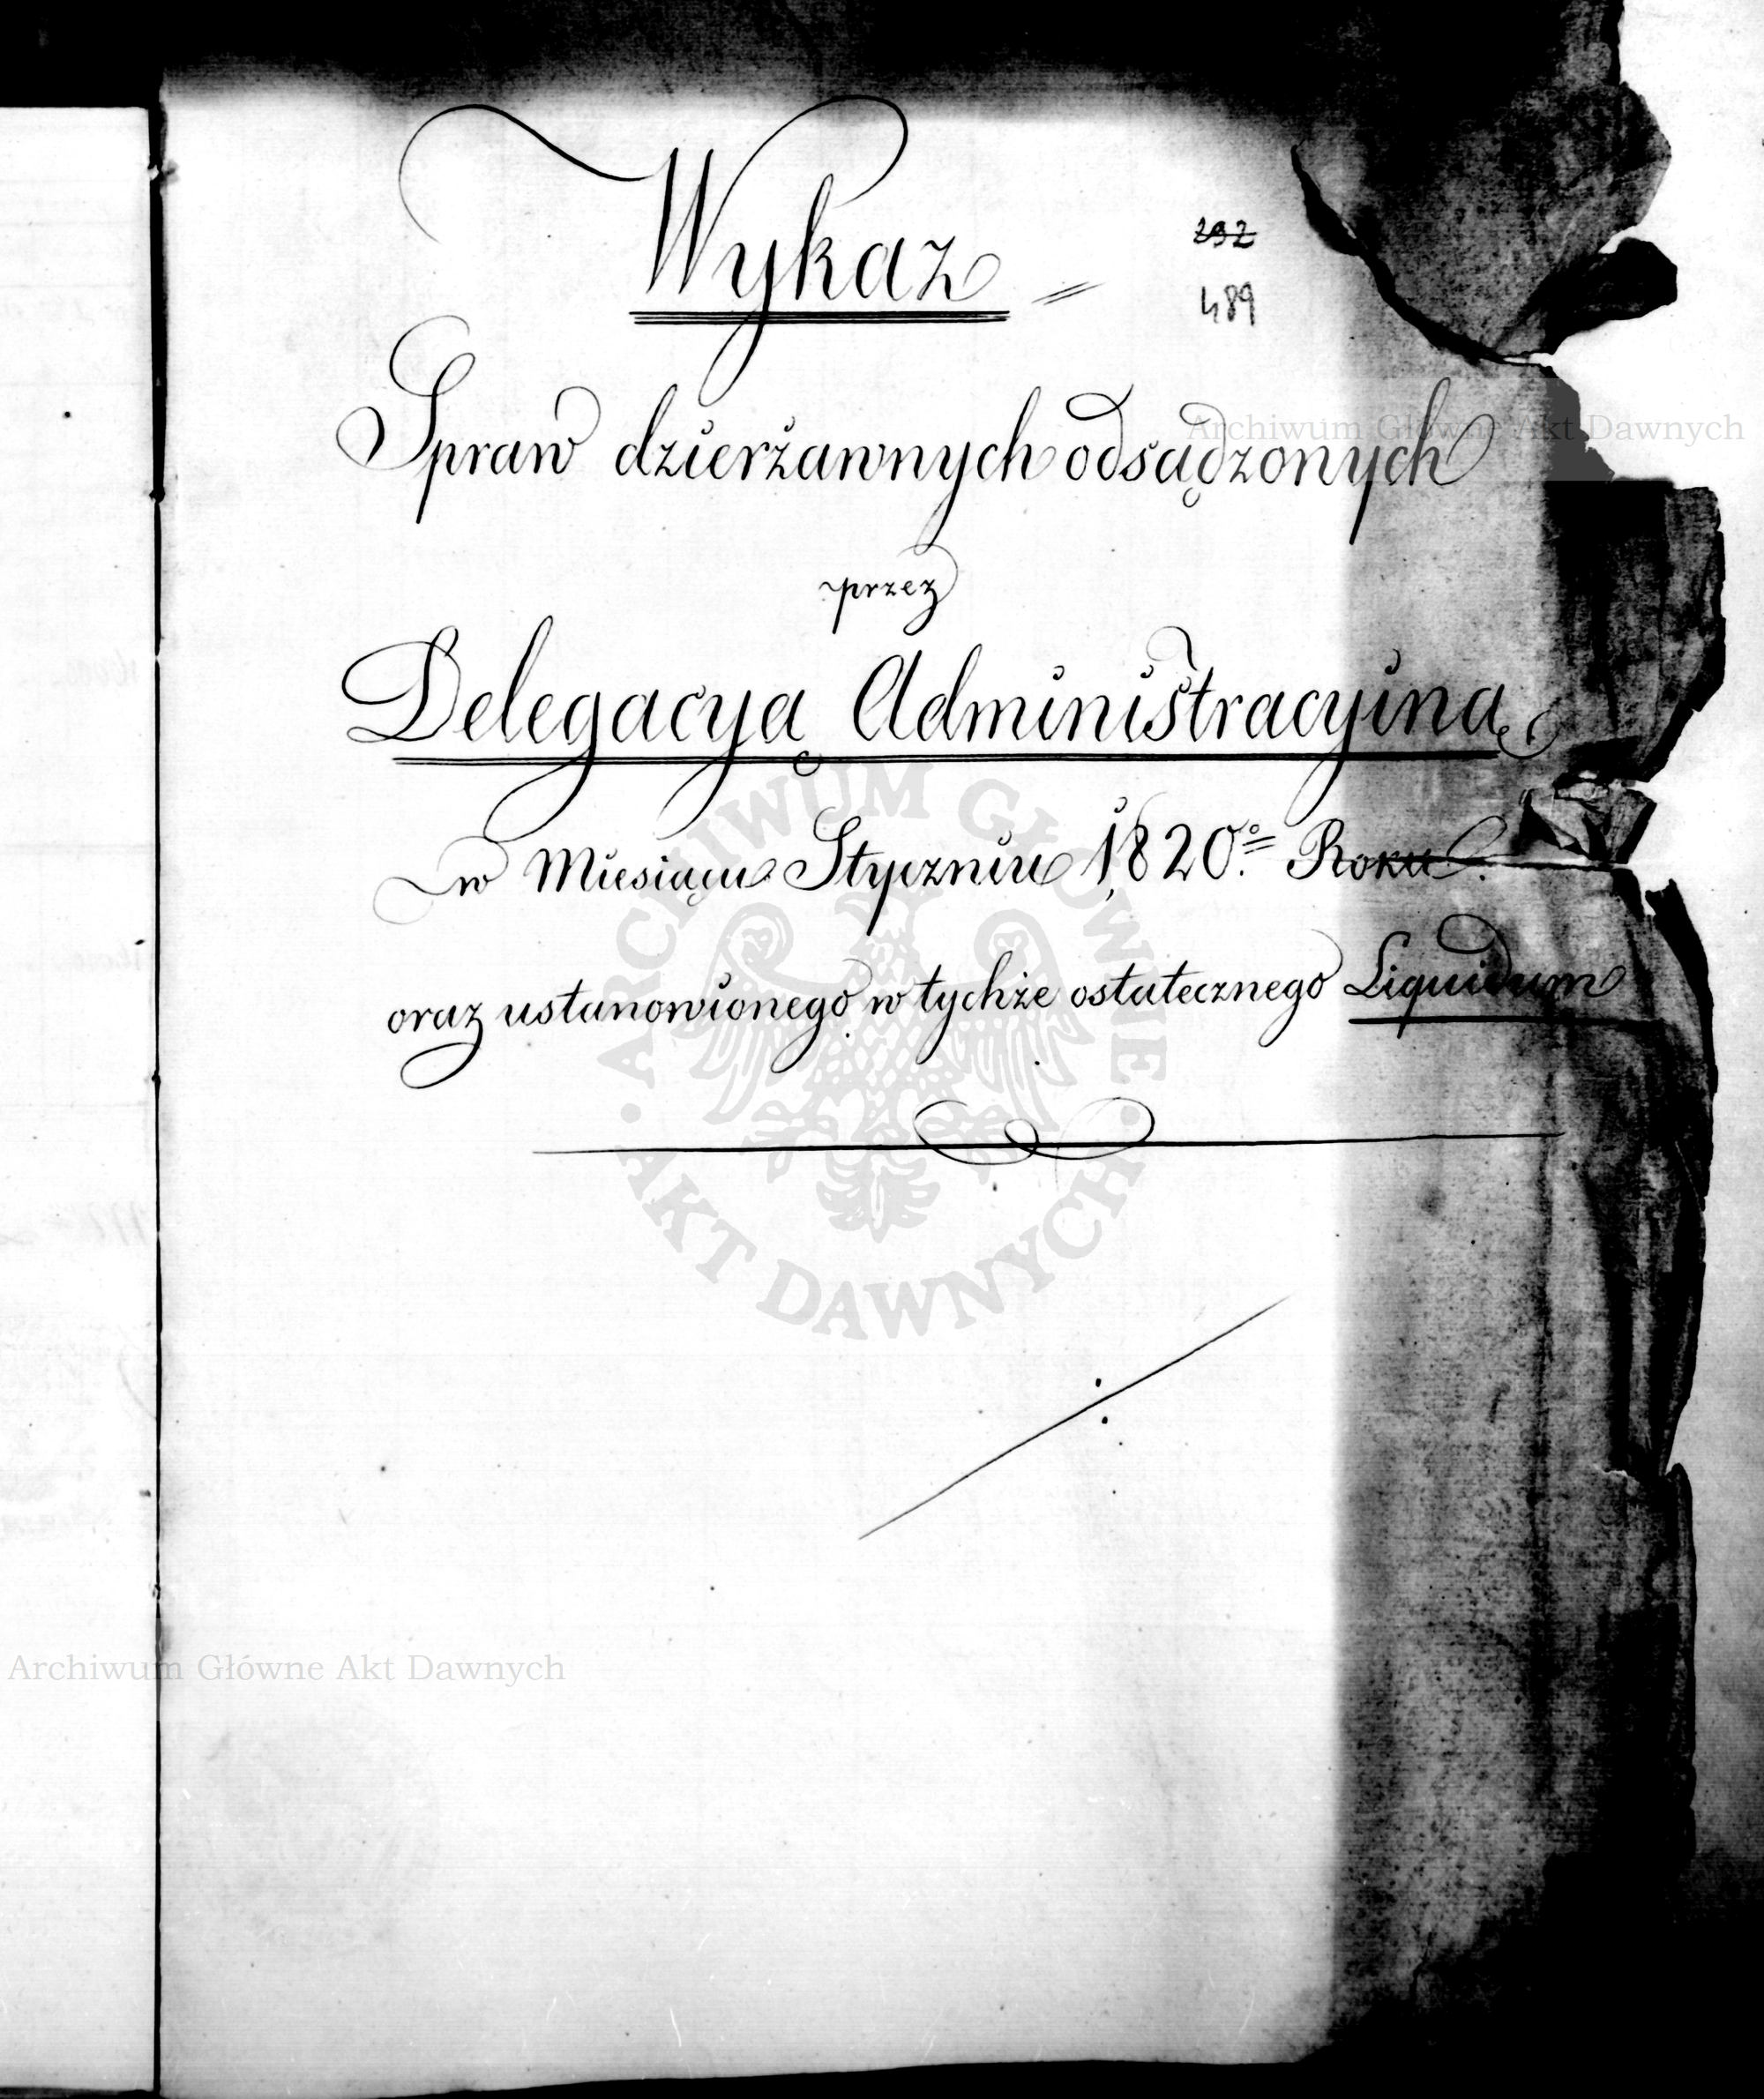 Wykaz =
292
489
Spraw dzierżawnych odsądzonych
przez
Delegacyą Administracyiną
w Miesiącu Styczniu 1820.º Roku.
oraz ustanowionego w tychże ostatecznego Liquidum
Archiwum Główne Akt Dawnych
ARCHIWUM GŁÓWNE
AKT DAWNYCH
Archiwum Główne Akt Dawnych